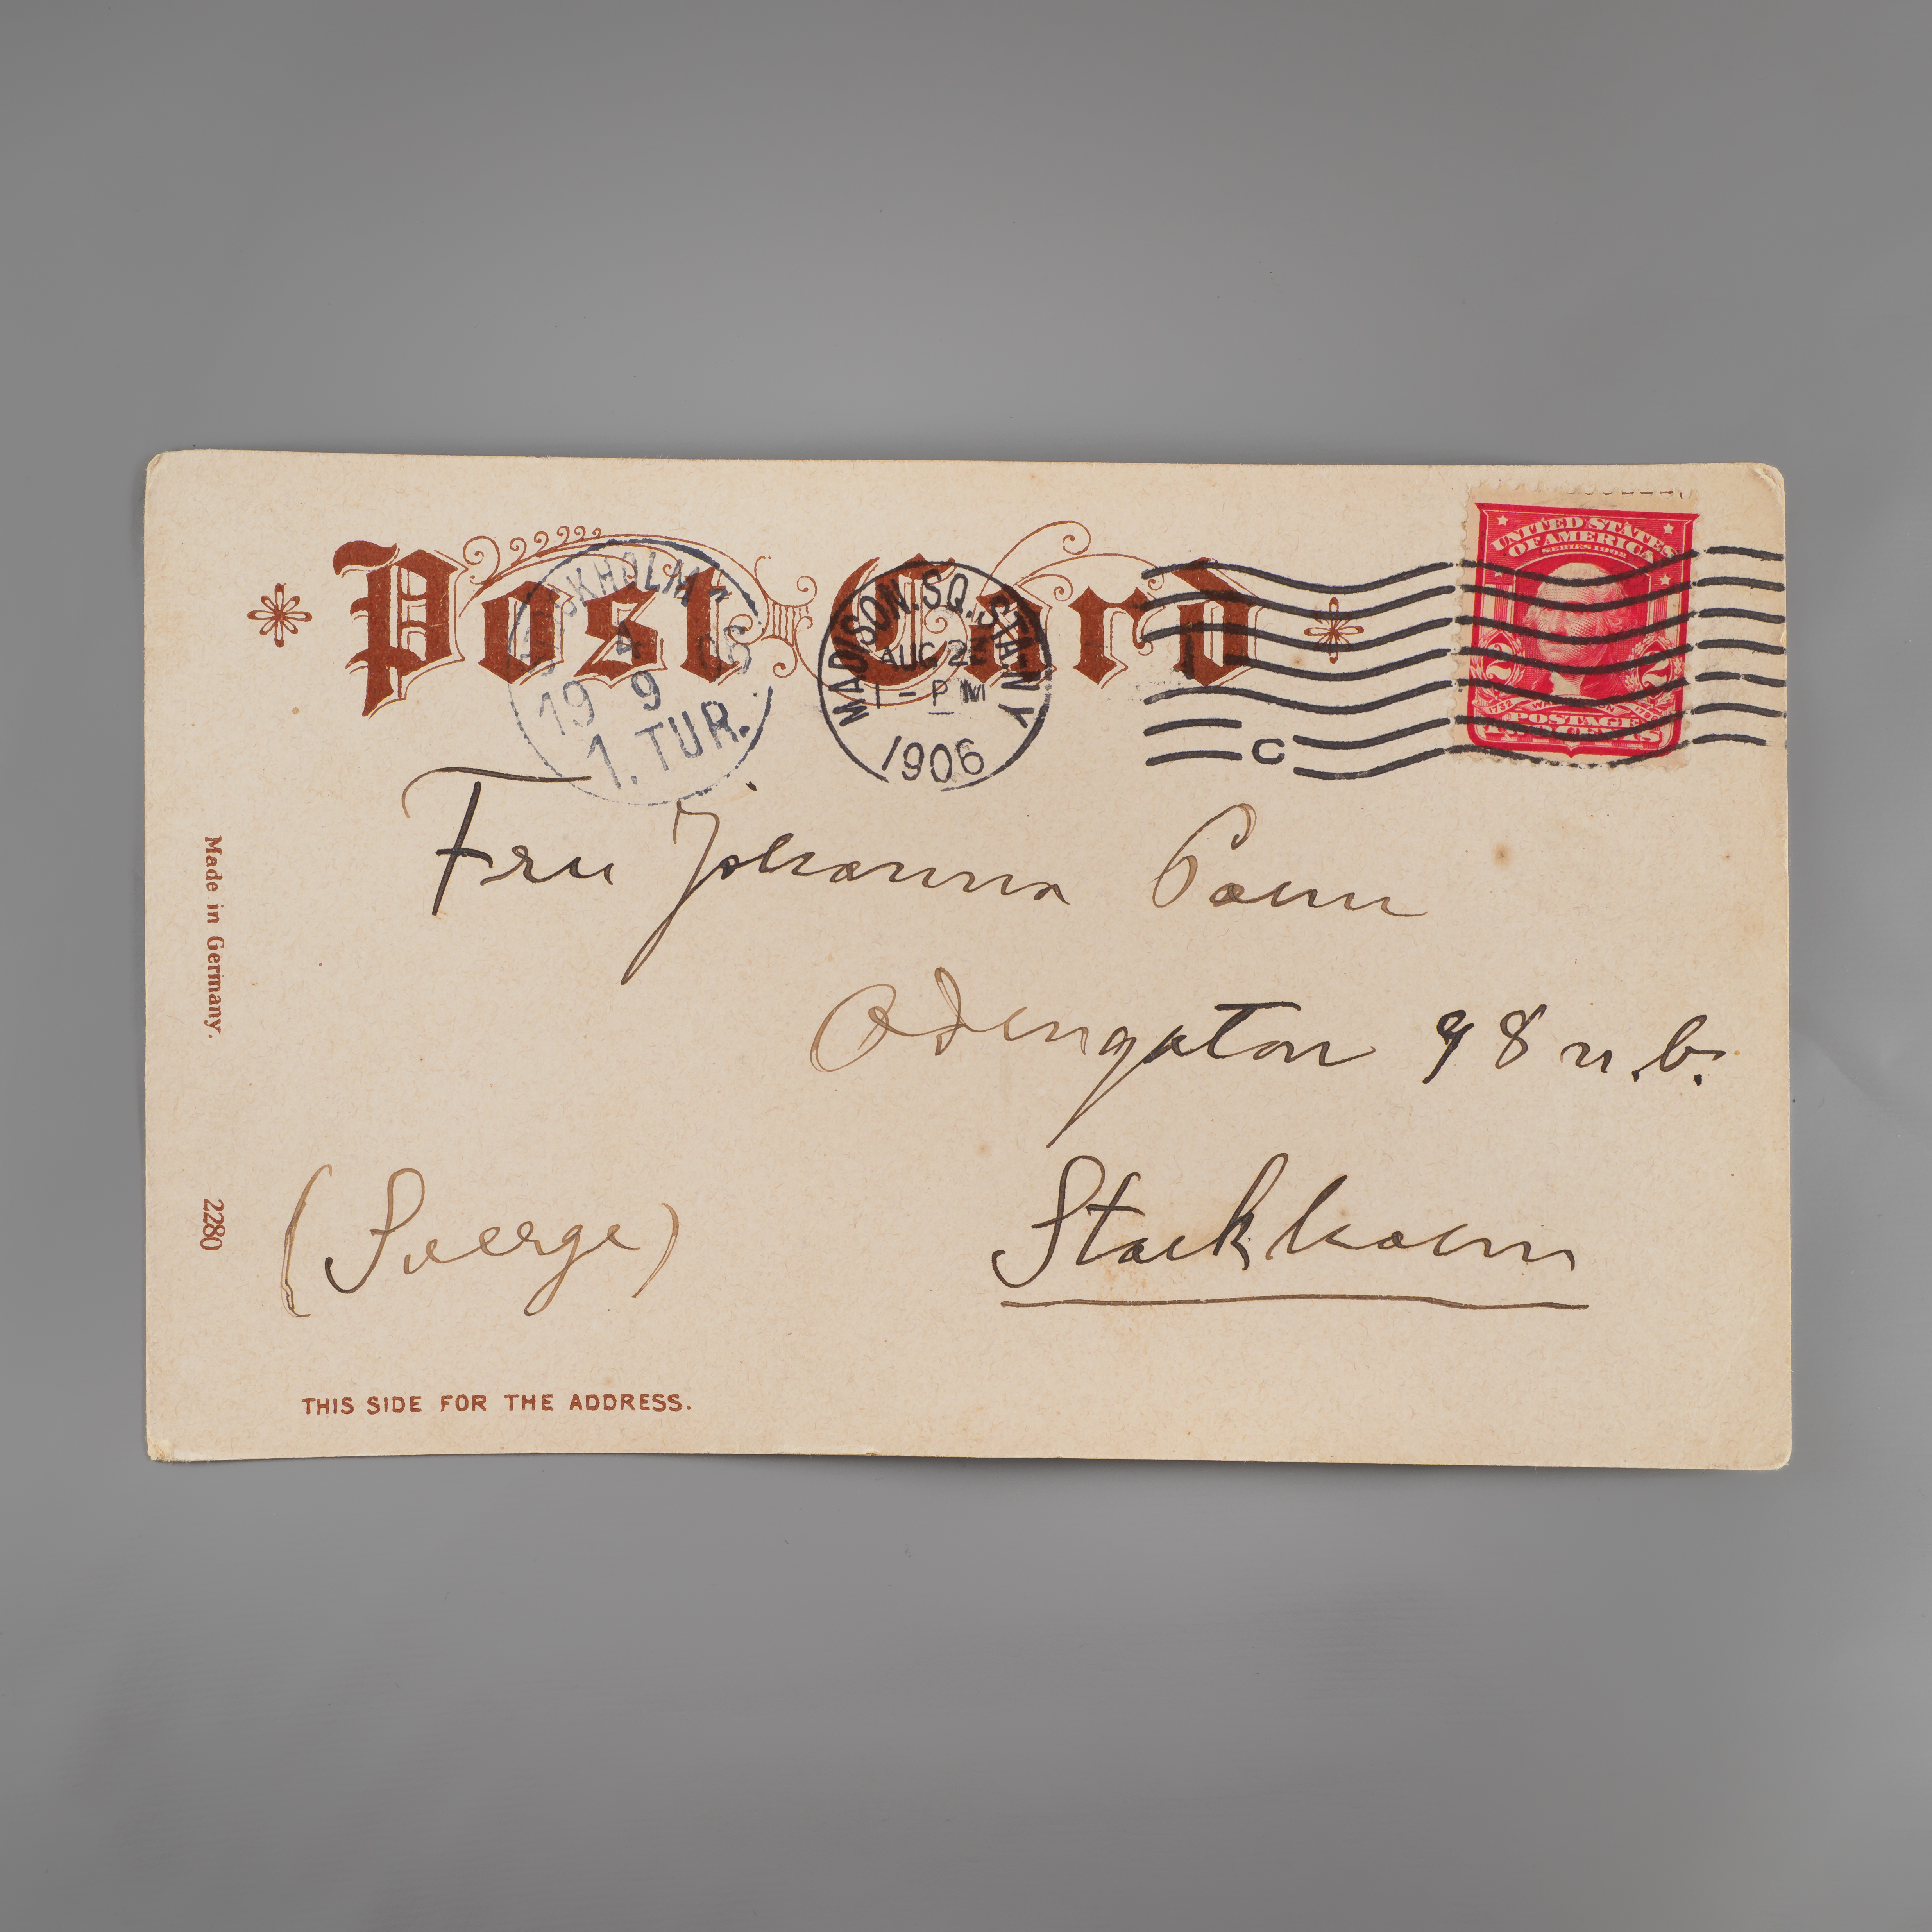 Post Card
STOCKHOLM 1
4 06
19 9
1. TUR.
MADISON SQ. STA. N.Y.
AUG 2
1 - PM
1906
C
UNITED STATES
OF AMERICA
SERIES 1902
2 2
1732 WASHINGTON
POSTAGE
TWO CENTS
Fru Johanna
Odengatan 98 n.b.
(Sverge) Stockholm
THIS SIDE FOR THE ADDRESS.
Made in Germany.
2280